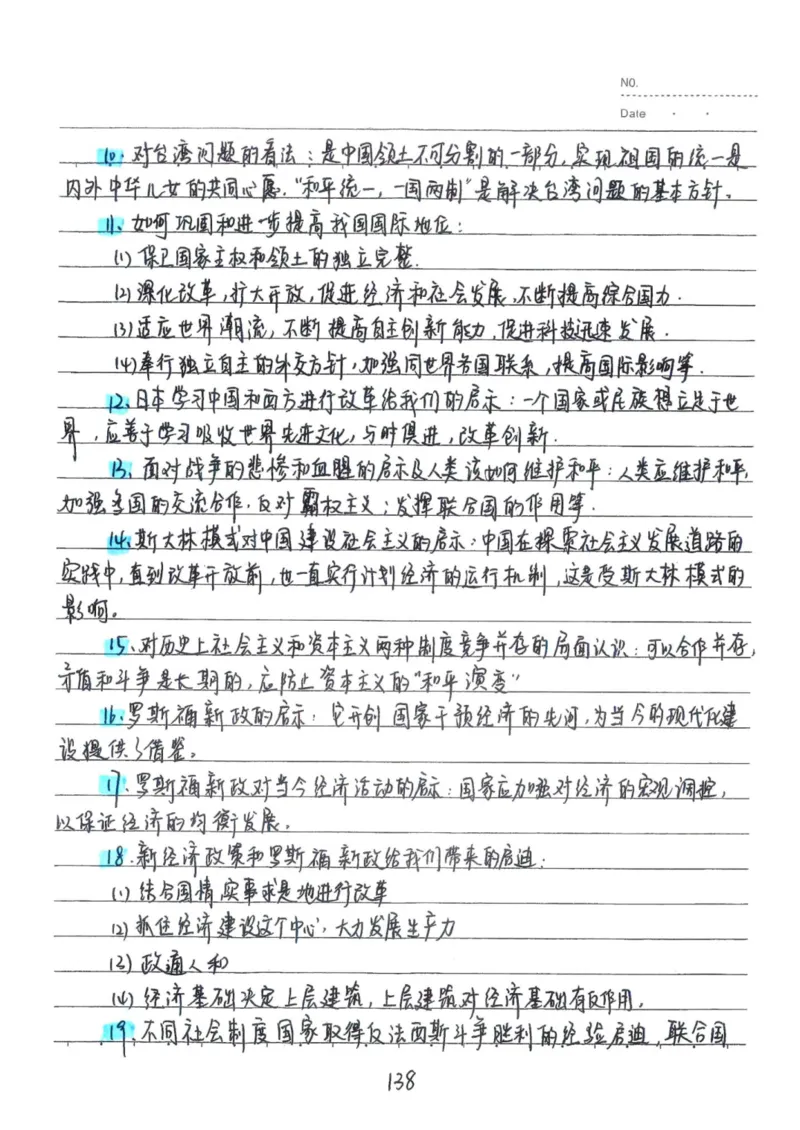 NO.
Date
10、对台湾问题的看法：是中国领土不可分割的一部分，实现祖国的统一是
内外中华儿女的共同心愿．“和平统一，一国两制”是解决台湾问题的基本方针。
11、如何巩固和进一步提高我国国际地位：
(1) 保卫国家主权和领土的独立完整．
(2) 深化改革，扩大开放，促进经济和社会发展，不断提高综合国力．
(3) 适应世界潮流，不断提高自主创新能力，促进科技迅速发展．
(4) 奉行独立自主的外交方针，加强同世界各国联系，提高国际影响等．
12、日本学习中国和西方进行改革给我们的启示：一个国家或民族想立足于世
界，应善于学习吸收世界先进文化，与时俱进，改革创新．
13、面对战争的悲惨和血腥的启示及人类该如何维护和平：人类应维护和平，
加强各国的交流合作．反对霸权主义；发挥联合国的作用等．
14、斯大林模式对中国建设社会主义的启示：中国在探索社会主义发展道路的
实践中，直到改革开放前，也一直实行计划经济的运行机制，这是受斯大林模式的
影响。
15、对历史上社会主义和资本主义两种制度竞争并存的局面认识：可以合作并存，
矛盾和斗争是长期的，应防止资本主义的“和平演变”
16、罗斯福新政的启示：它开创国家干预经济的先河，为当今的现代化建
设提供了借鉴。
17、罗斯福新政对当今经济活动的启示：国家应加强对经济的宏观调控，
以保证经济的均衡发展．
18．新经济政策和罗斯福新政给我们带来的启迪：
(1) 结合国情实事求是地进行改革
(2) 抓住经济建设这个中心，大力发展生产力
(3) 政通人和
(4) 经济基础决定上层建筑，上层建筑对经济基础有反作用．
19、不同社会制度国家取得反法西斯斗争胜利的经验启迪，联合国
138